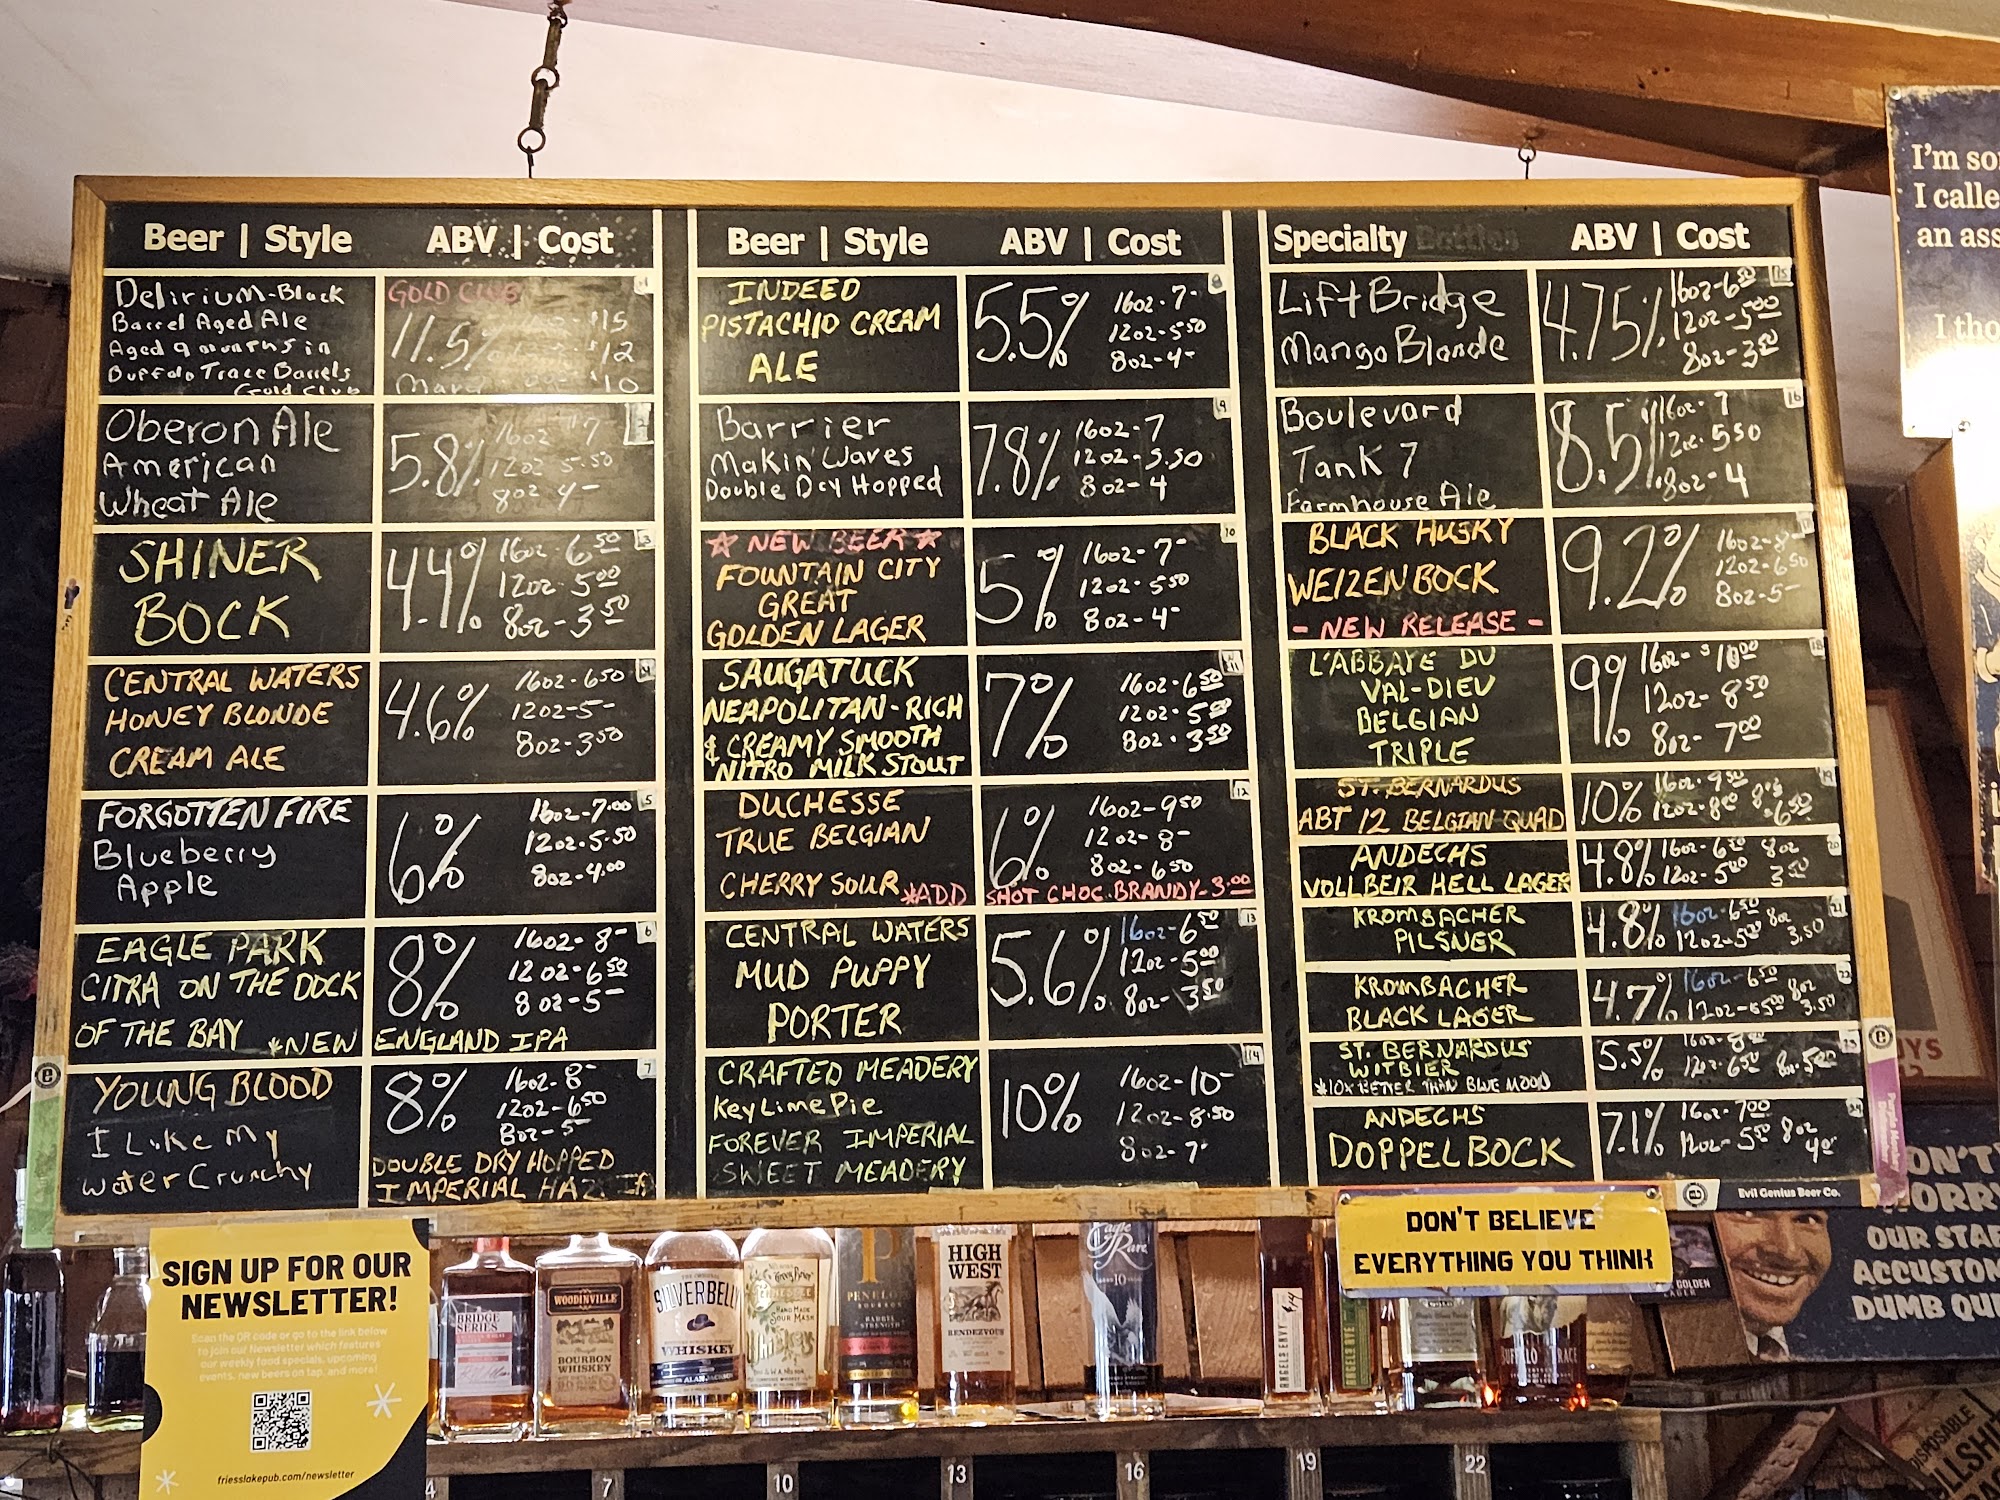 Beer | Style ABV | Cost
Delirium-Black
Barrel Aged Ale
Aged 9 months in
Buffalo Trace Barrels
Gold Club
GOLD CLUB
11.5%
$15
$12
$10
1
Oberon Ale
American
Wheat Ale
5.8%
16oz 7-
12oz 5.50
8oz 4-
2
SHINER
BOCK
4.4%
16oz-6.50
12oz-5.00
8oz-3.50
3
CENTRAL WATERS
HONEY BLONDE
CREAM ALE
4.6%
16oz-650
12oz-5-
8oz-350
4
FORGOTTEN FIRE
Blueberry
Apple
6%
16oz-7.00
12oz-5.50
8oz-4.00
5
EAGLE PARK
CITRA ON THE DOCK
OF THE BAY *NEW ENGLAND IPA
8%
16oz-8-
12oz-650
8oz-5-
6
YOUNG BLOOD
I Like My
Water Crunchy
8%
16oz-8-
12oz-650
8oz-5-
DOUBLE DRY HOPPED
IMPERIAL
7
Beer | Style ABV | Cost
INDEED
PISTACHIO CREAM
ALE
5.5%
16oz-7-
12oz-550
8oz-4-
8
Barrier
Makin' Waves
Double Dry Hopped
7.8%
16oz-7
12oz-5.50
8oz-4
9
☆ NEW BEER ☆
FOUNTAIN CITY
GREAT
GOLDEN LAGER
5%
16oz-7-
12oz-550
8oz-4-
10
SAUGATUCK
NEAPOLITAN-RICH
& CREAMY SMOOTH
NITRO MILK STOUT
7%
16oz-650
12oz-500
8oz-350
11
DUCHESSE
TRUE BELGIAN
CHERRY SOUR *ADD SHOT CHOC. BRANDY-3.00
6%
16oz-950
12oz-8-
8oz-650
12
CENTRAL WATERS
MUD PUPPY
PORTER
5.6%
16oz-650
12oz-500
8oz-350
13
CRAFTED MEADERY
Key Lime Pie
FOREVER IMPERIAL
SWEET MEADERY
10%
16oz-10-
12oz-8.50
8oz-7-
14
Specialty Bottles ABV | Cost
Lift Bridge
Mango Blonde
4.75%
16oz-650
12oz-500
8oz-350
15
Boulevard
Tank 7
Farmhouse Ale
8.5%
16oz-7
12oz-550
8oz-4
16
BLACK HUSKY
WEIZENBOCK
- NEW RELEASE -
9.2%
16oz-8-
12oz-650
8oz-5-
17
L'ABBAYE DU
VAL-DIEU
BELGIAN
TRIPLE
9%
16oz-$1000
12oz-850
8oz-700
18
ST. BERNARDUS
ABT 12 BELGIAN QUAD
10%
16oz-950
12oz-800 8oz
-650
19
ANDECHS
VOLLBEIR HELL LAGER
4.8%
16oz-650 8oz
12oz-500 350
20
KROMBACHER
PILSNER
4.8%
16oz-650 8oz
12oz-500 3.50
21
KROMBACHER
BLACK LAGER
4.7%
16oz-650 8oz
12oz-500 3.50
22
ST. BERNARDUS
WITBIER
*10X BETTER THAN BLUE MOON
5.5%
16oz-800
12oz-650 8oz-500
23
ANDECHS
DOPPELBOCK
7.1%
16oz-700
12oz-550 8oz
400
24
Evil Genius Beer Co.
I'm so
I calle
an ass
I tho
SIGN UP FOR OUR
NEWSLETTER!
Scan the QR code or go to the link below
to join our Newsletter which features
our weekly food specials, upcoming
events, new beers on tap, and more!
friesslakepub.com/newsletter
BRIDGE
SERIES
WOODINVILLE
BOURBON
WHISKEY
SILVERBELLY
WHISKEY
ALAN JACKSON
HAND MADE
SOUR MASH
P
PENELOPE
BOURBON
BARREL
STRENGTH
HIGH
WEST
RENDEZVOUS
Eagle
Rare
AGED 10
ANGELS ENVY
ANGELS RYE
BUFFALO TRACE
DON'T BELIEVE
EVERYTHING YOU THINK
GOLDEN
LAGER
ON'T
ORRY
OUR STAF
ACCUSTOM
DUMB QU
DISPOSABLE
4
7
10
13
16
19
22